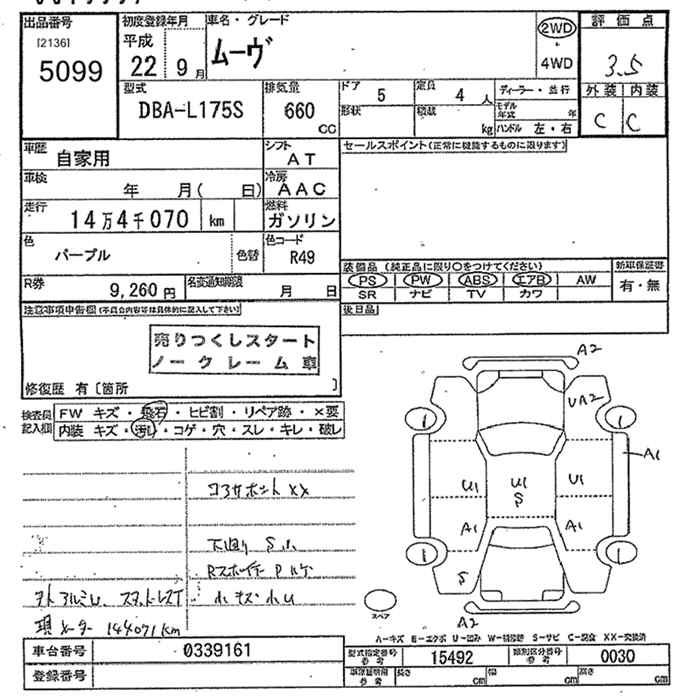 出品番号
[2136]
5099
初度登録年月
平成
22 9月
車名・グレード
ムーヴ
2WD
・
4WD
評価点
3.5
外装 内装
C C
型式
DBA-L175S
排気量
660
CC
ドア
5
形状
定員
4 人
積載
kg
ディーラー・並行
モデル年式 年
ハンドル 左・右
車歴
自家用
シフト
AT
セールスポイント(正常に機能するものに限ります)
車検
年 月( 日)
冷房
AAC
走行
14万4千070 km
燃料
ガソリン
色
パープル
色替
色コード
R49
R券
9,260 円
名変通知期限
月 日
装備品 (純正品に限り○をつけてください)
PS PW ABS エアB AW
SR ナビ TV カワ
新車保証書
有・無
後日品
注意事項申告欄(不具合内容等は具体的に記入して下さい)
売りつくしスタート
ノークレーム車
修復歴 有〔箇所 〕
検査員記入欄
FW キズ・飛石・ヒビ割・リペア跡・×要
内装 キズ・汚れ・コゲ・穴・スレ・キレ・破レ
コアサポートXX
下廻りS小
小キズ小U
現メーター 144071km
A2
UA2
A1
U1
U1
S
U1
A1
A1
S
A2
スペア
A-キズ E-エクボ U-凹み W-補修跡 S-サビ C-腐食 XX-交換済
車台番号 0339161
登録番号
型式指定番号 参考 15492
類別区分番号 参考 0030
車庫証明用 参考 長さ cm 幅 cm 高さ cm